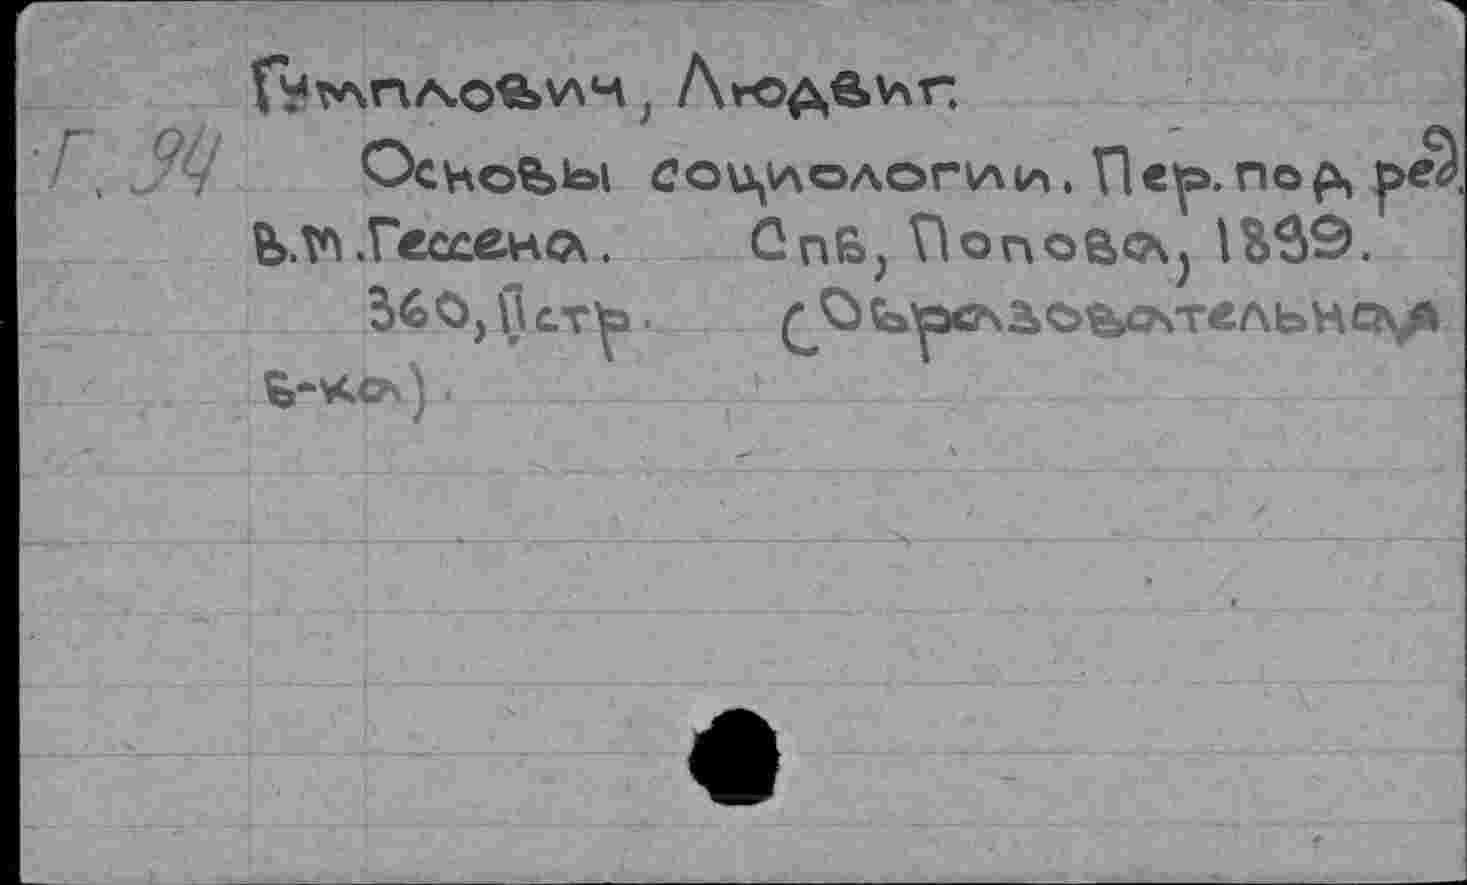 Гумплович, Людвиг.
Г. 94 Основы социологии. Пер. под ред.
В.М. Гессена. Спб, Попова, 1899.
360, II стр. (Образовательная
б-ка).